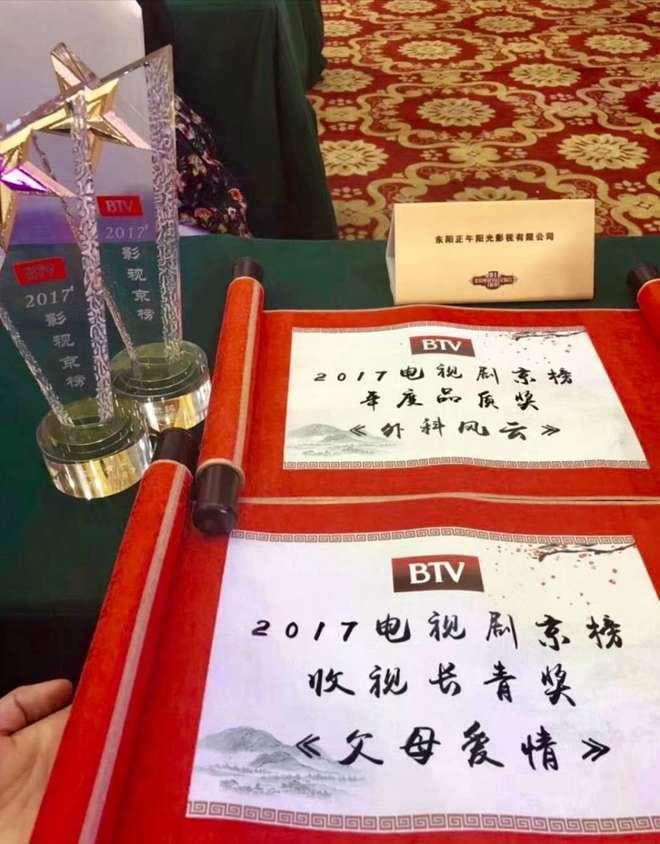 BTV
2017
影视京榜
BTV
2017
影视京榜
东阳正午阳光影视有限公司
BTV
2017电视剧京榜
年度品质奖
《外科风云》
BTV
2017电视剧京榜
收视长青奖
《父母爱情》